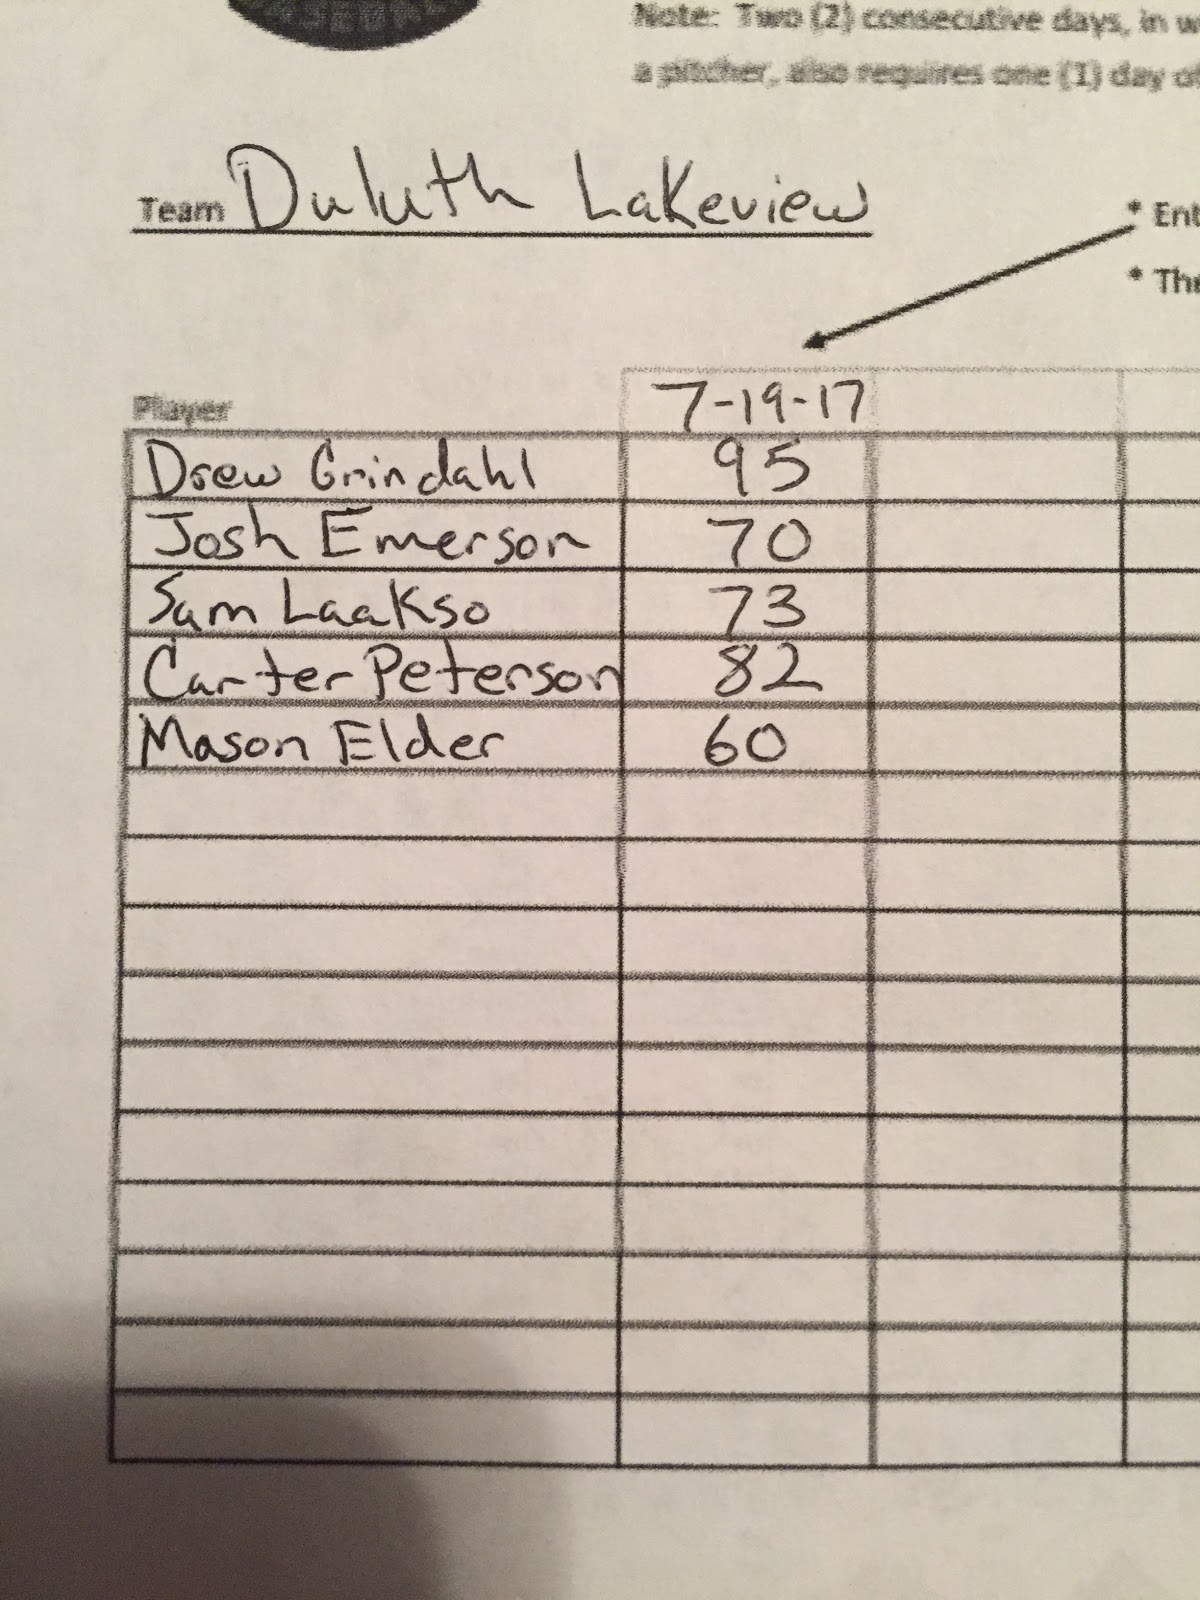 Note: Two (2) consecutive days, in w
a pitcher, also requires one (1) day of
Team Duluth Lakeview
* Ent
* The
Player 7-19-17
Drew Grindahl 95
Josh Emerson 70
Sam Laakso 73
Carter Peterson 82
Mason Elder 60